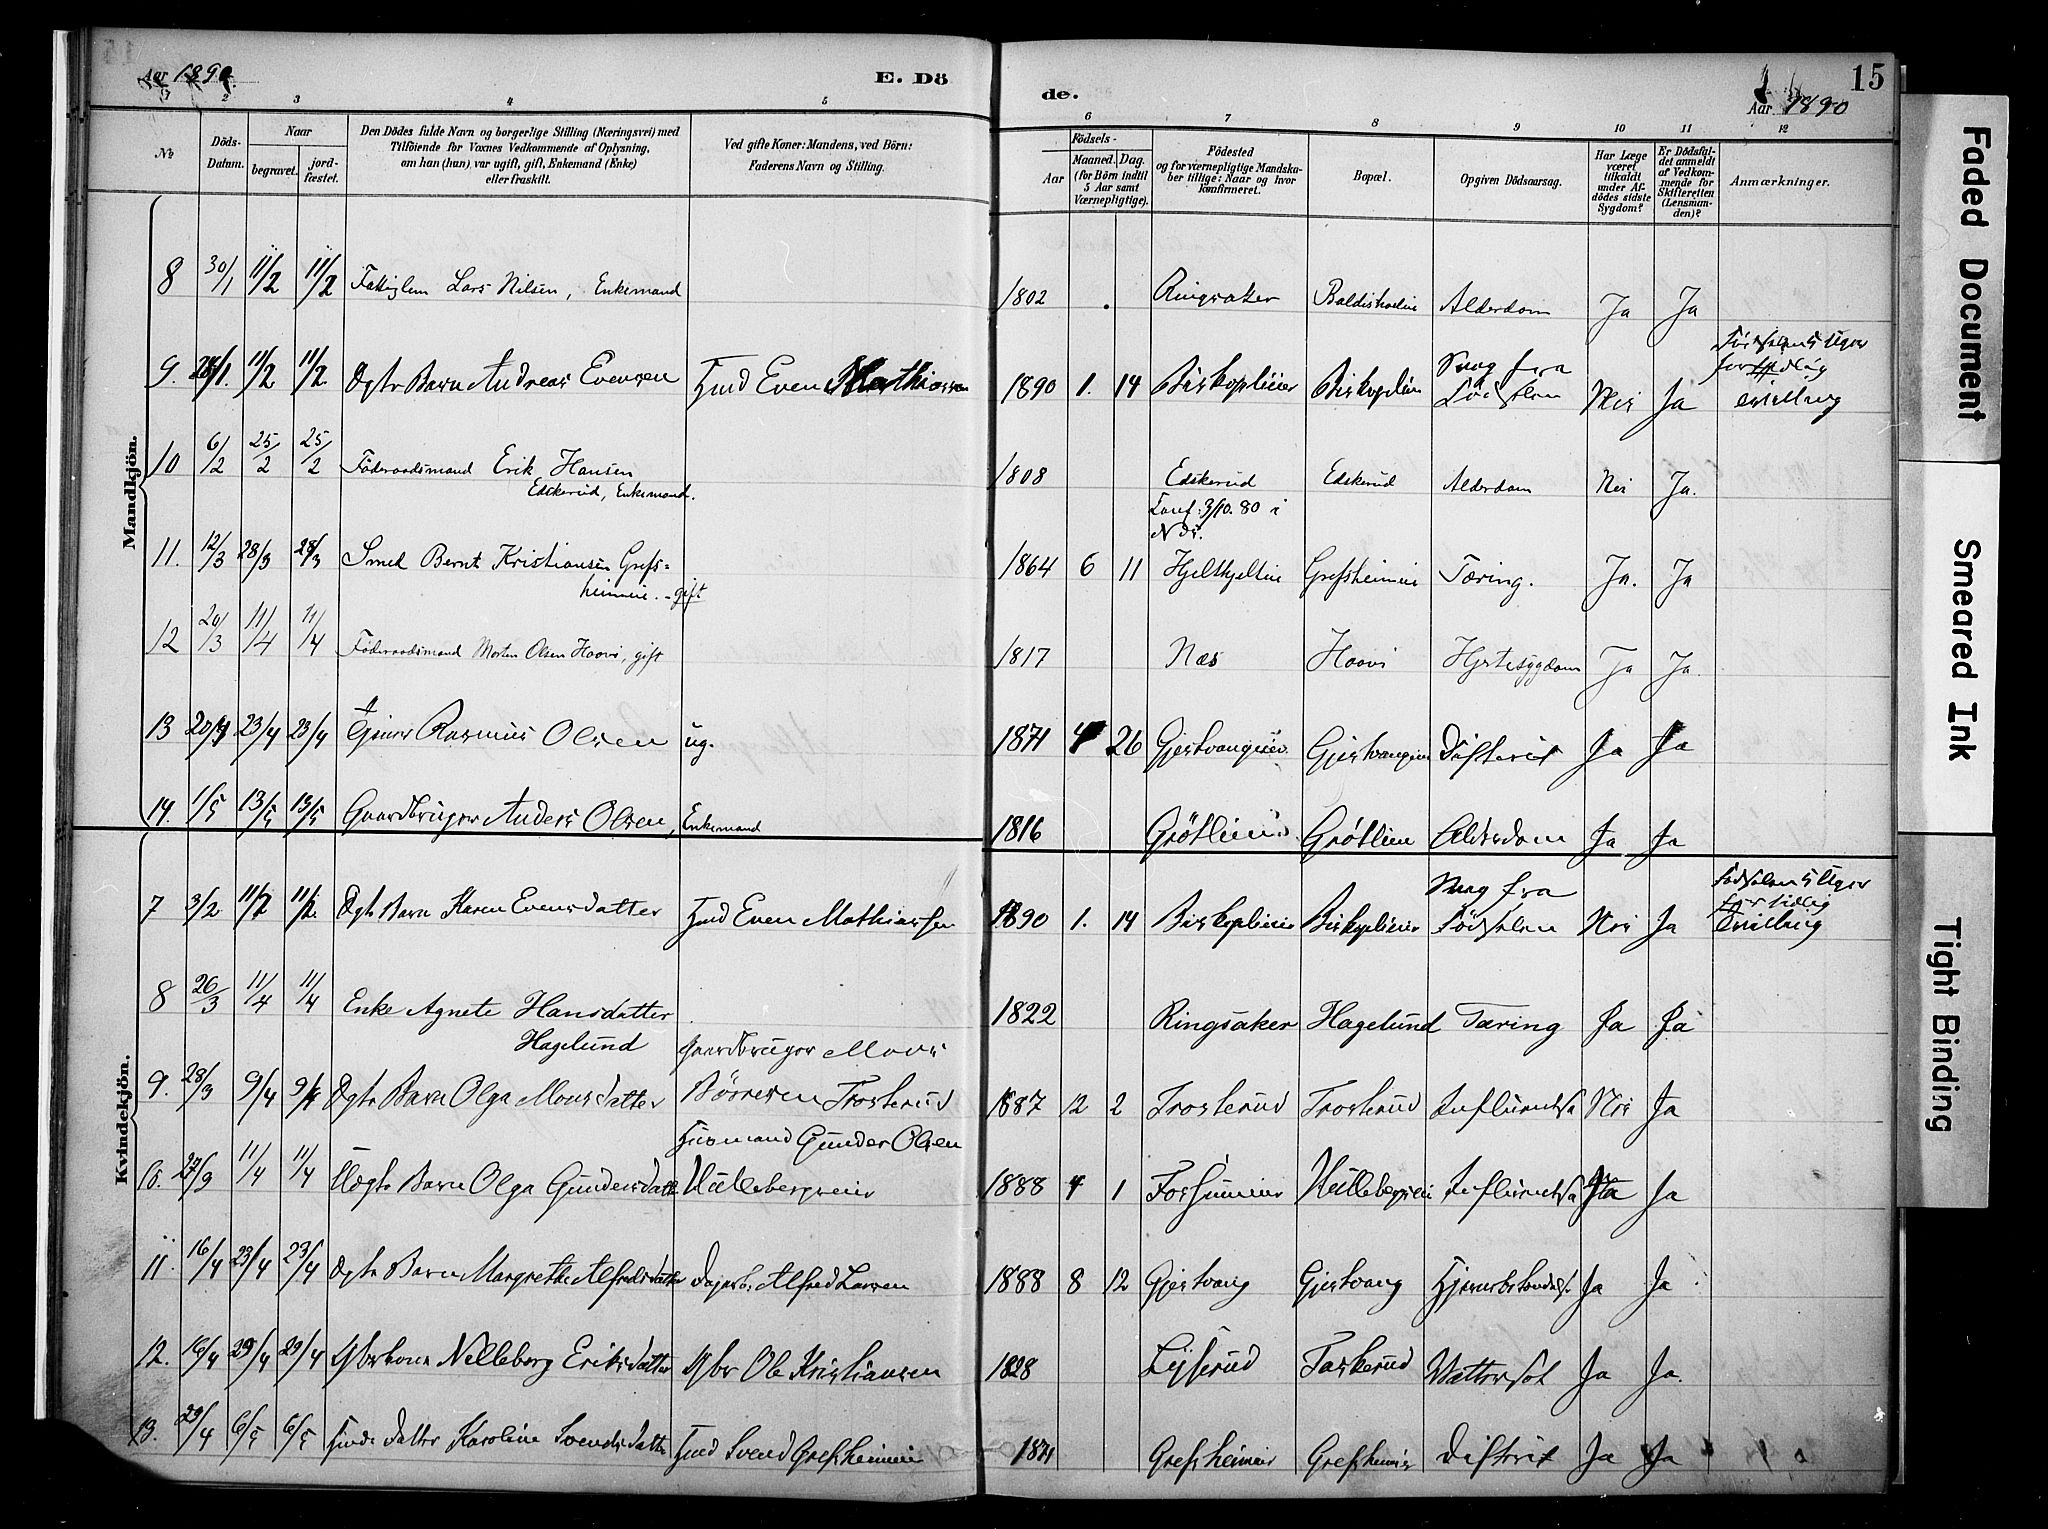 Aar 1890.
E. Dö
de.
Aar 1890
15
1 2 3 4 5
6 7 8 9 10 11 12
No
Döds-Datum.
Naar
begravet.
jord-fæstet.
Den Dödes fulde Navn og borgerlige Stilling (Næringsvei) med
Tilföiende for Voxnes Vedkommende af Oplysning,
om han (hun) var ugift, gift, Enkemand (Enke)
eller fraskilt.
Ved gifte Koner: Mandens, ved Börn:
Faderens Navn og Stilling.
Födsels-
Aar
Maaned. Dag.
(for Börn indtil
5 Aar samt
Værnepligtige).
Födested
og for værnepligtige Mandska-
ber tillige: Naar og hvor
konfirmeret.
Bopæl.
Opgiven Dödsaarsag.
Har Læge
været
tilkaldt
under Af-
dödes sidste
Sygdom?
Er Dödsfal-
det anmeldt
af Vedkom-
mende for
Skifteretten
(Lensman-
den)?
Anmærkninger.
Mandkjön.
8 30/1 11/2 11/2 Fattiglem Lars Nilsen, Enkemand 1802 Ringsaker Alderdom Ja Ja
9. 11/2 11/2 Dgtr Barn Andreas Evensen Hmd Even Mathiassen 1890 1. 14 Biskoplieie Biskoplieie Svag fra Födselen Nei Ja Födselen 5 Uger for tidlig tvilling
10 6/2 25/2 25/2 Föderaadsmand Erik Hansen
Edskerud, Enkemand. 1808 Edskerud Edskerud Alderdom Nei Ja.
Conf: 3/10. 80 i
Næs.
11. 12/3 28/3 28/3 Smed Bernt Kristiansen Grefs=
heimeie. - gift 1864 6 11 Grefsheimeie Tæring. Ja. Ja
12 20/3 11/4 11/4 Föderaadsmand Morten Olsen Hoovi, gift 1817 Næs Hoovi Hjertesygdom Ja Ja.
13 20/4 23/4 23/4 Tjener Rasmus Olsen ug. 1871 4 26 Gjestvangeie Gjestvangeie Difterit Ja Ja
14. 1/5 13/5 13/5 Gaardbruger Anders Olsen, Enkemand 1816 Grötlien Grötlien Alderdom Ja Ja
Kvindekjön.
7 3/2 11/2 11/2. Dgtr Barn Karen Evensdatter Hmd Even Mathiassen 1890 1. 14 Biskoplieie Biskoplieie Svag fra Födselen Nei Ja Födselen 5 Uger for tidlig Tvilling
8 26/3 11/4 11/4 Enke Agnete Hansdatter
Hagelund 1822 Ringsaker Hagelund Tæring Ja Ja
9. 28/3 9/4 9/4 Dgtr Barn Olga Monsdatter Gaardbruger Mons
Börresen Trosterud 1887 12 2 Trosterud Trosterud Influentsa Nei Ja
10. 27/3 11/4 11/4 Uægte Barn Olga Gundersdatter Husmand Gunder Olsen
Hullebergseie 1888 4 1 Hullebergseie Influentsa Ja
11. 16/4 23/4 23/4 Dgtr Barn Margrethe Alfredsdatter Dagarb. Alfred Larsen 1888 8 12 Gjestvang Gjestvang Ja Ja
12. 16/4 29/4 29/4 Nelleborg Eriksdatter Ole Kristiansen 1828 Taskerud Vattersot Ja Ja.
13. 29/4 6/5 6/5 datter Karoline Svendsdatter Hmd Svend Grefsheimeie 1871 Grefsheimeie Grefsheimeie Difterit Ja Ja
Faded Document
Smeared Ink
Tight Binding